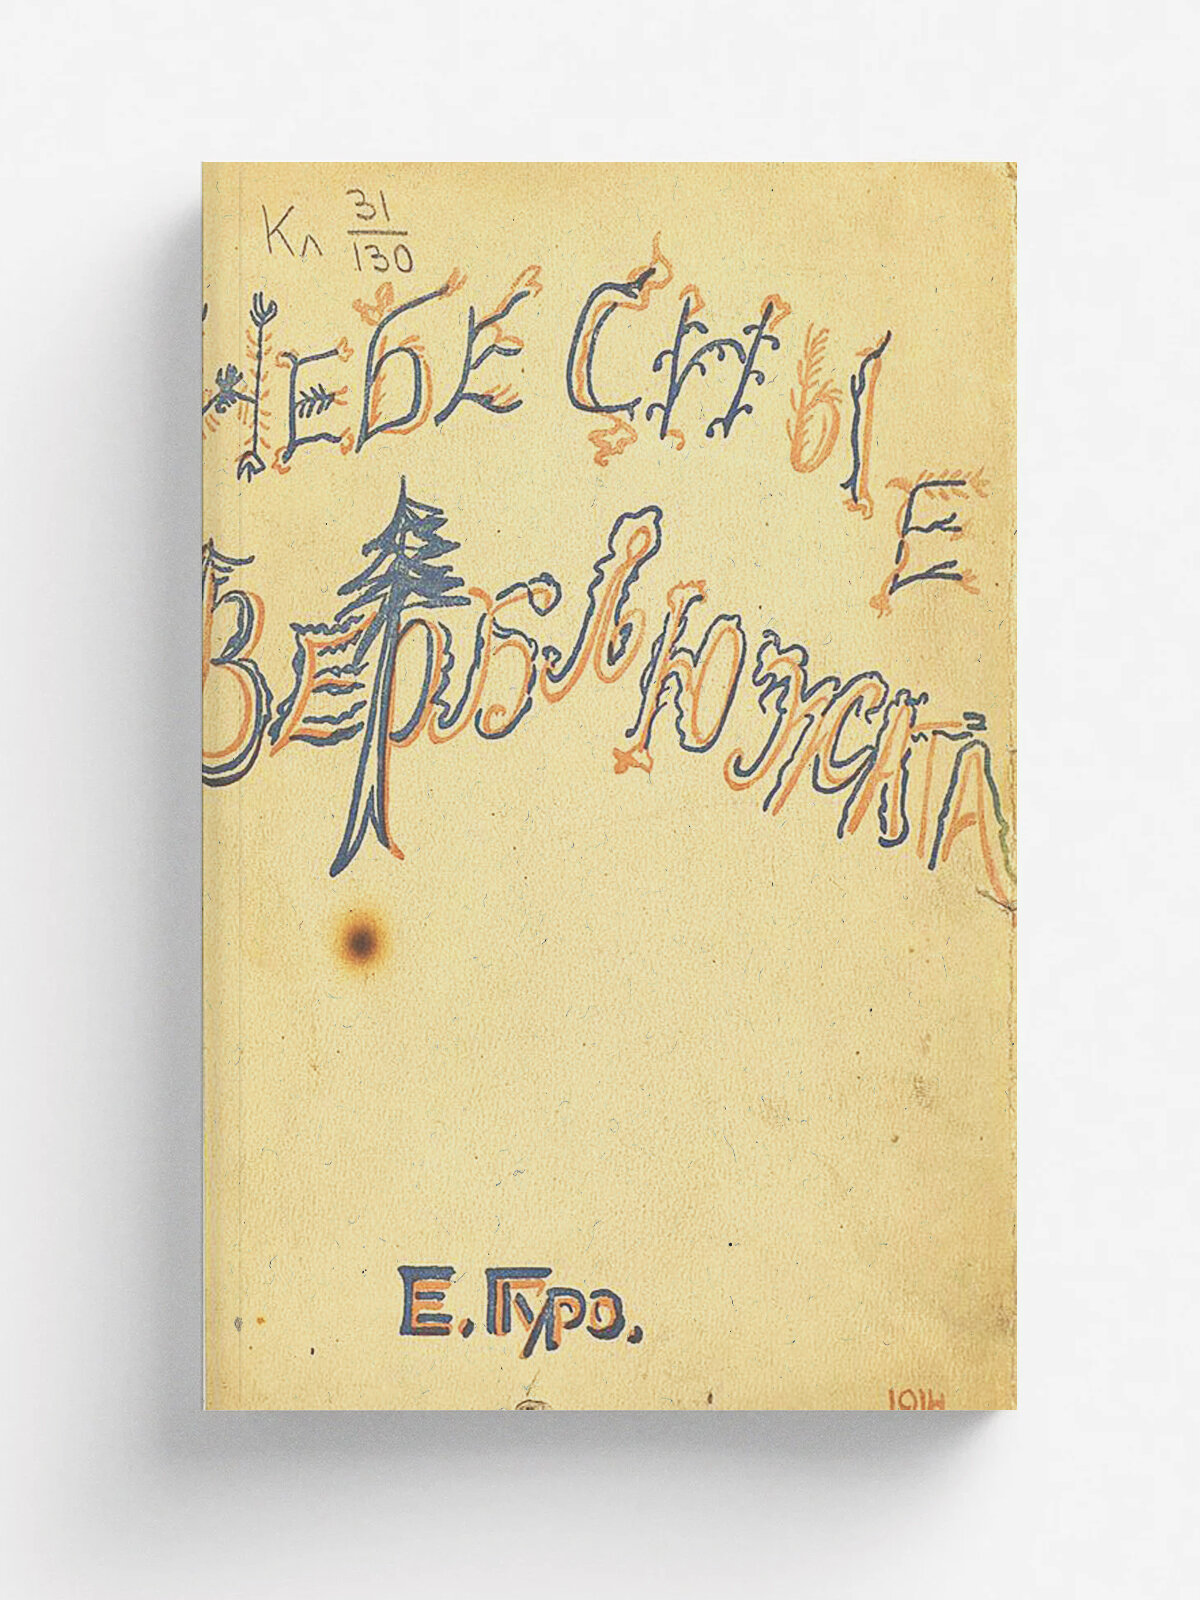 Кл 31/130
НЕБЕСНЫЕ
ВЕРБЛЮЖАТА
Е. Гуро.
1914